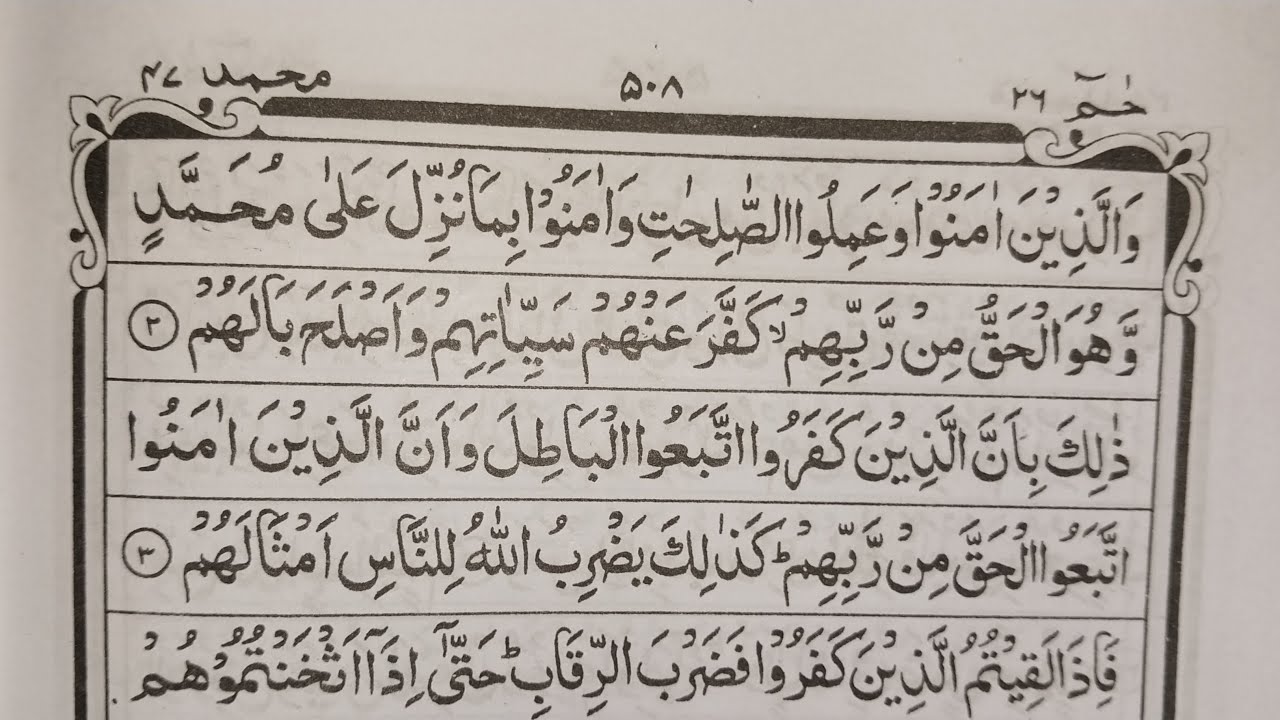 حٰمٓ ۲۶ ۵۰۸ محمد ۴۷
وَالَّذِيْنَ اٰمَنُوْا وَعَمِلُوا الصّٰلِحٰتِ وَاٰمَنُوْا بِمَا نُزِّلَ عَلٰى مُحَمَّدٍ
وَّهُوَ الْحَقُّ مِنْ رَّبِّهِمْ ۙ كَفَّرَ عَنْهُمْ سَيِّاٰتِهِمْ وَاَصْلَحَ بَالَهُمْ ۝۲
ذٰلِكَ بِاَنَّ الَّذِيْنَ كَفَرُوا اتَّبَعُوا الْبَاطِلَ وَاَنَّ الَّذِيْنَ اٰمَنُوا
اتَّبَعُوا الْحَقَّ مِنْ رَّبِّهِمْ ؕ كَذٰلِكَ يَضْرِبُ اللّٰهُ لِلنَّاسِ اَمْثَالَهُمْ ۝۳
فَاِذَا لَقِيْتُمُ الَّذِيْنَ كَفَرُوْا فَضَرْبَ الرِّقَابِ ؕ حَتّٰۤى اِذَاۤ اَثْخَنْتُمُوْهُمْ